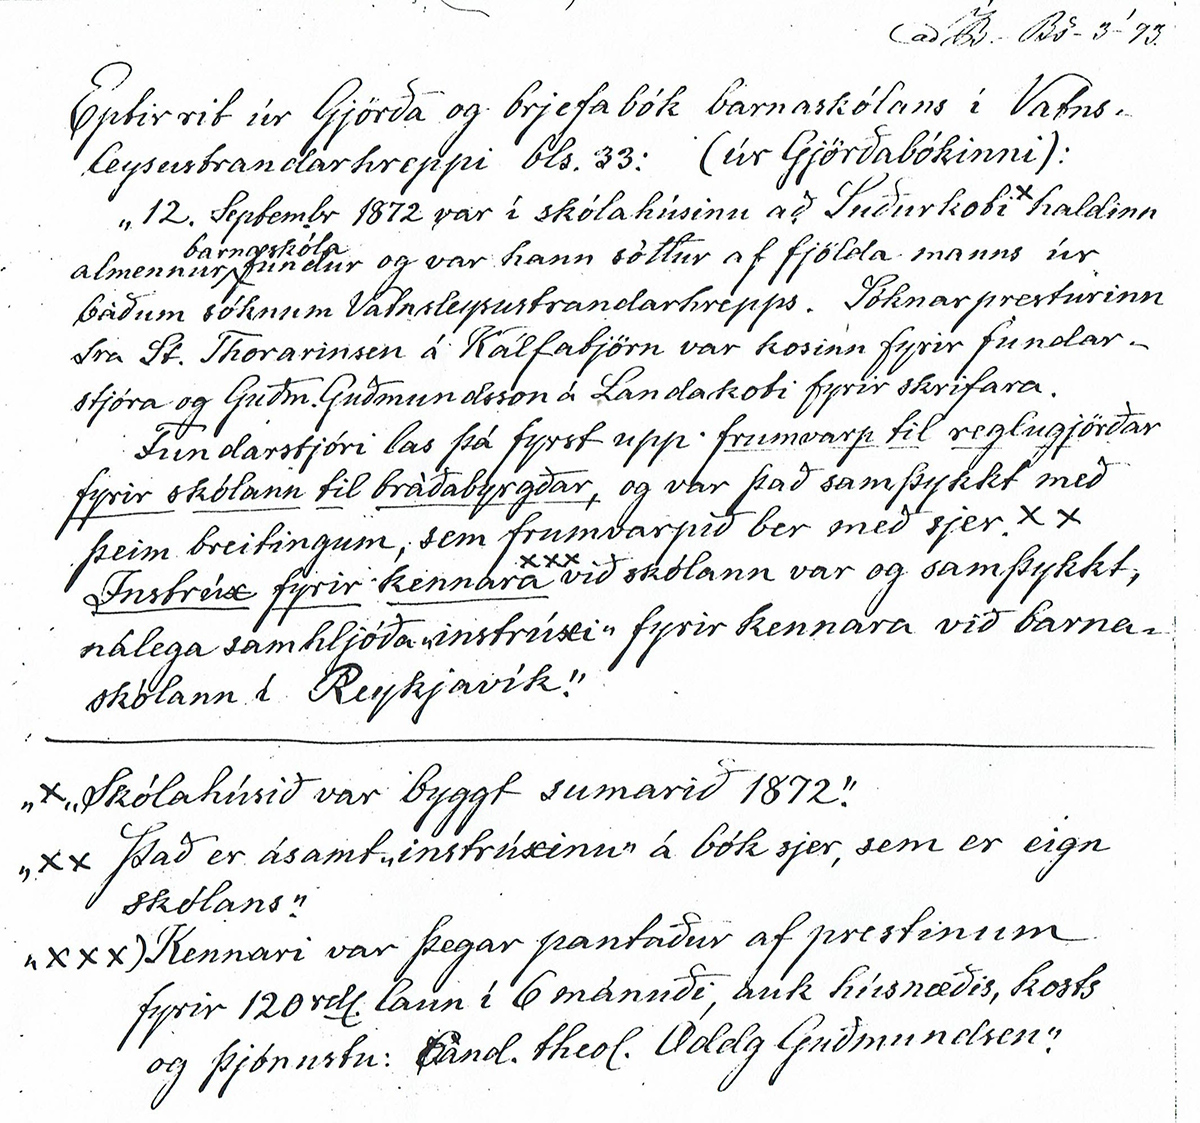 (að B. - Bš - 3' 93.
Eptirrit úr Gjörða og brjefabók barnaskólans í Vatns-
leysustrandarhreppi bls. 33: (úr Gjörðabókinni):
„12. Septembr 1872 var í skólahúsinu að Suðurkoti x haldinn
barnaskóla
almennur fundur og var hann sóttur af fjölda manns úr
báðum sóknum Vatnsleysustrandarhrepps. Sóknarpresturinn
sra St. Thorarinsen á Kálfatjörn var kosinn fyrir fundar-
stjóra og Guðm. Guðmundsson á Landakoti fyrir skrifara.
Fundarstjóri las þá fyrst upp frumvarp til reglugjörðar
fyrir skólann til bráðabyrgðar, og var það samþykkt með
þeim breitingum, sem frumvarpið ber með sjer. x x
Instrúx fyrir kennara xxx við skólann var og samþykkt,
nálega samhljóða „instrúxi“ fyrir kennara við barna-
skólann í Reykjavík.“
„x „Skólahúsið var byggt sumarið 1872“.
„xx Það er ásamt „instrúxinu“ á bók sjer, sem er eign
skólans“.
„xxx) Kennari var þegar pantaður af prestinum
fyrir 120 rdl. laun í 6 mánuði, auk húsnæðis, kosts
og þjónustu: Cand. theol. Oddg Guðmundsen“.